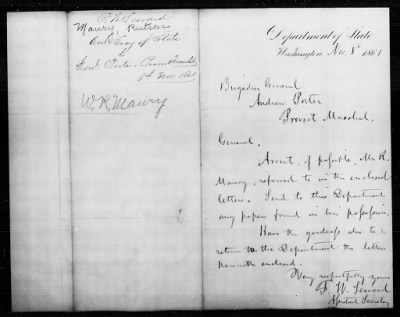 F. W. Seward
Asst Secy of State
to
Genl Porter. Provost Marshal
8th Nov 1861
W. R. Maury
Department of State
Washington Nov. 8th 1861
Brigadier General
Andrew Porter
Provost Marshal.
General,
Arrest, if possible, Mr R.
Maury, referred to in the enclosed
letters. Send to this Department
any papers found in his possession.
Have the goodness also to
return to the Department the letters
herewith enclosed.
Very respectfully yours
F. W. Seward
Assistant Secretary